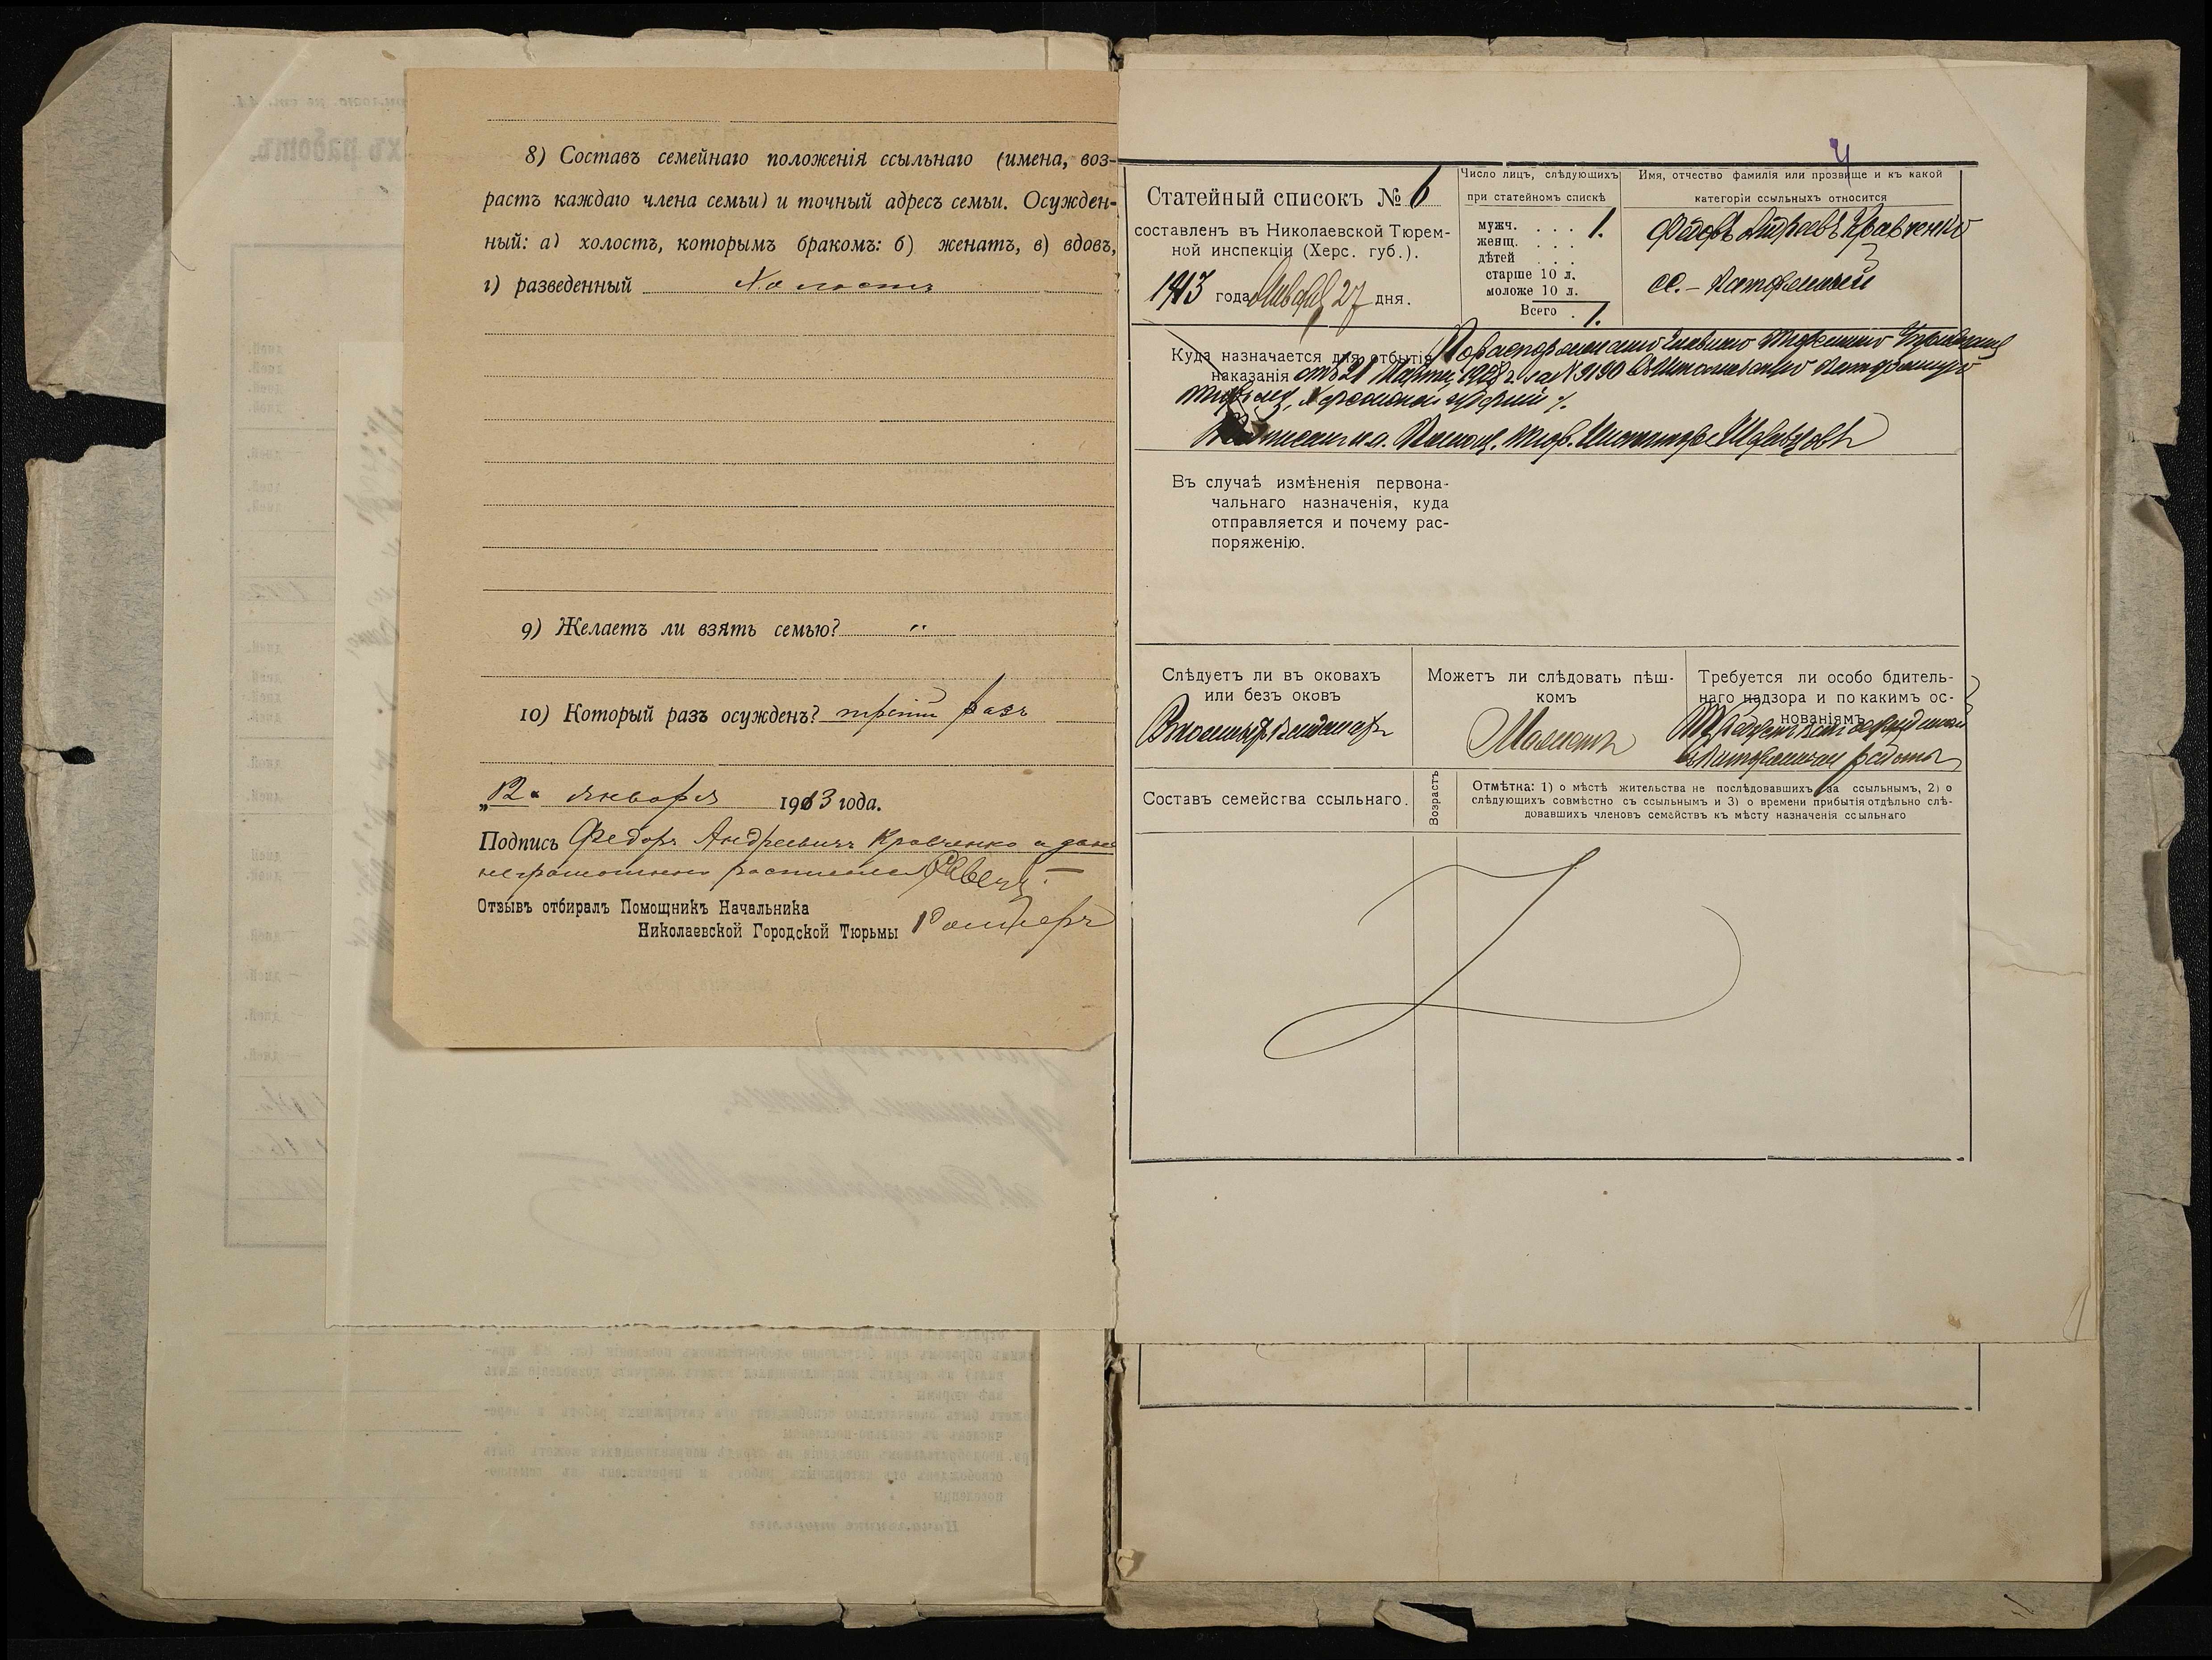 8) Составъ семейнаго положенія ссыльнаго (имена, воз-
растъ каждаго члена семьи) и точный адресъ семьи. Осужден-
ный: а) холостъ, которымъ бракомъ: б) женатъ, в) вдовъ,
г) разведенный Холостъ
9) Желаетъ ли взять семью? "
10) Который разъ осужденъ? третій разъ
„12" января 1913 года.
Подпись Федоръ Андреевичъ Кравченко а за него
неграмотнаго росписался
Отзывъ отбиралъ Помощникъ Начальника
Николаевской Городской Тюрьмы
4
Статейный списокъ № 6
составленъ въ Николаевской Тюрем-
ной инспекціи (Херс. губ.).
1913 года Января 27 дня.
Число лицъ, слѣдующихъ
при статейномъ спискѣ
мужч. . . . 1.
женщ. . . .
дѣтей . . .
старше 10 л.
моложе 10 л.
Всего . 1.
Имя, отчество фамилія или прозвище и къ какой
категоріи ссыльныхъ относится
Федоръ Андреевъ Кравченко
сс.-каторжный
Куда назначается для отбытія По распоряженію Главнаго Тюремнаго Управленія
наказанія отъ 21 Марта 1908 г. за № 9190 въ Николаевскую каторжную
тюрьму, Херсонской губерніи %.
Подписалъ и.о. Помощ. Тюр. Инспектора
Въ случаѣ измѣненія первона-
чальнаго назначенія, куда
отправляется и почему рас-
поряженію.
Слѣдуетъ ли въ оковахъ
или безъ оковъ
Можетъ ли слѣдовать пѣш-
комъ
Можетъ
Требуется ли особо бдитель-
наго надзора и по какимъ ос-
нованіямъ
Требуется какъ осужденный
въ каторжныя работы
Составъ семейства ссыльнаго.
Возрастъ
Отмѣтка: 1) о мѣстѣ жительства не послѣдовавшихъ за ссыльнымъ, 2) о
слѣдующихъ совмѣстно съ ссыльнымъ и 3) о времени прибытія отдѣльно слѣ-
довавшихъ членовъ семействъ къ мѣсту назначенія ссыльнаго